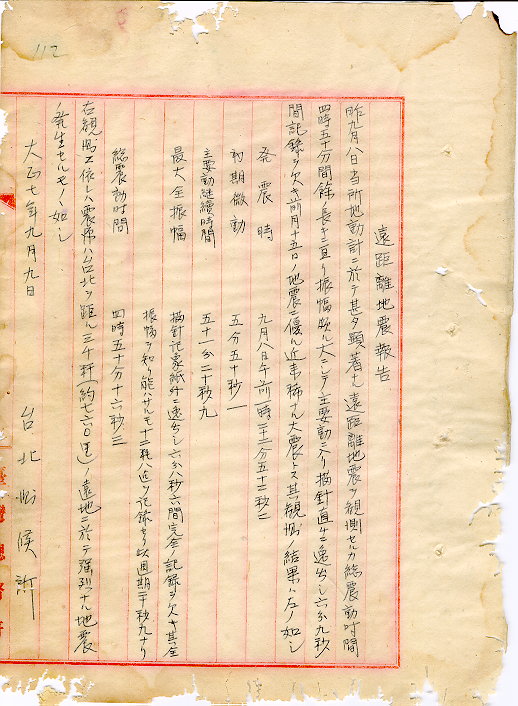 112
遠距離地震報告
昨九月八日当所地動計ニ於テ甚タ顕著ナル遠距離地震ヲ観測セルカ総震動時間
四時五十分間餘ノ長キニ亘リ振幅頗ル大ニシテ主要動ニ入リ描針直チニ逸出シ六分九秒
間記録ヲ欠キ前月十五日ノ地震ニ優ル近来稀ナル大震トス其観測ノ結果ハ左ノ如シ
発震時 九月八日午前一時二十二分五十二秒二
初期微動 五分五十秒一
主要動継続時間 五十一分二十秒九
最大全振幅 描針記象紙外ニ逸出シ六分八秒六間完全ノ記録ヲ欠キ其全
振幅ヲ知リ能ハサルモ十二粍八迄ヲ記録セリ 週期二十秒九ナリ
総震動時間 四時五十分十六秒三
右観測ニ依レハ震源ハ台北ヲ距ル三千粁(約七六〇里)ノ遠地ニ於テ強烈ナル地震
ノ発生セルモノノ如シ
大正七年九月九日
台北測候所